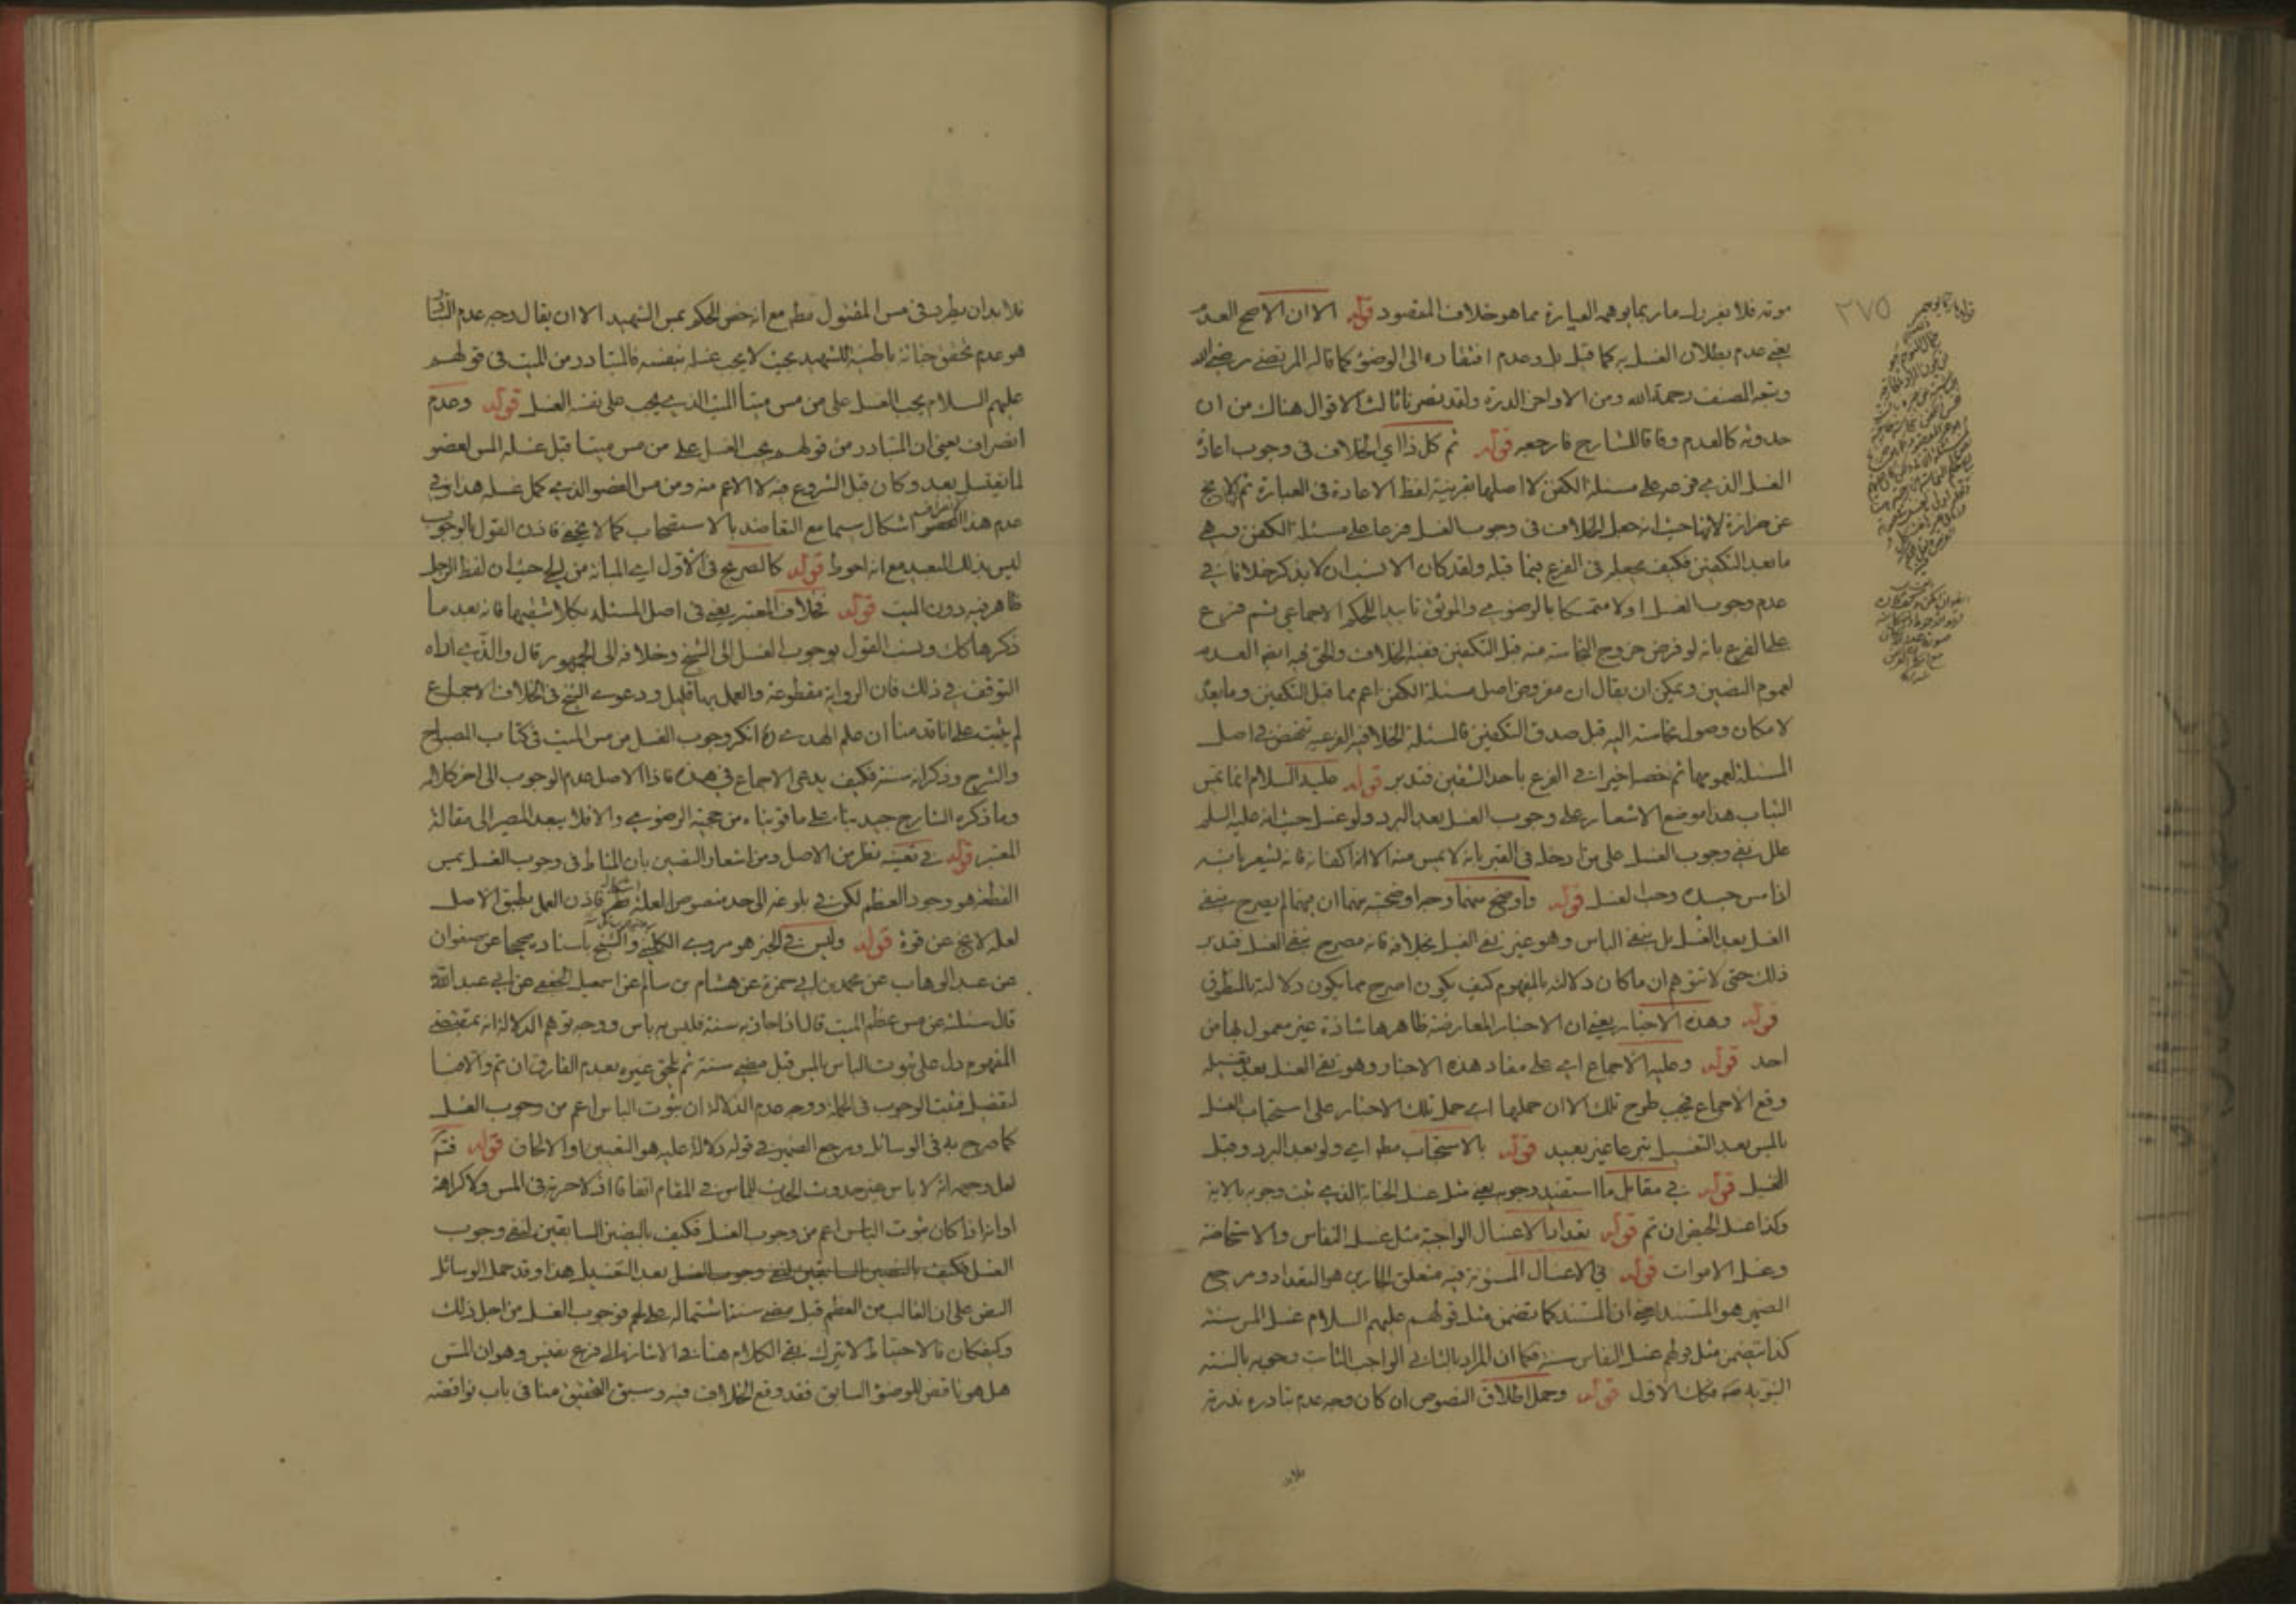 موته فلا يغرنك ما ربما يوهمه العبارة مما هو خلاف المقصود قوله الا ان الاصح العدم
يعني عدم بطلان الغسل به كما قيل بل وعدم افتقاره الى الوضوء كما قاله المرتضى رضي الله
وتبعه المصنف رحمة الله ومن الاواخر الدرة ولقد نصرنا ثالث الاقوال هناك من ان
حدوثه كالعدم وفاقا للشارح فارجعه قوله ثم كل ذا اي الخلاف في وجوب اعادة
الغسل الذي فرعه على مسئلة الكفن لا اصلها بقرينة لفظ الاعادة في العبارة ثم لا يخ
عن حزازة لانها حيث انه جعل الخلاف في وجوب الغسل فرعا على مسئلة الكفن وهي
ما بعد التكفين فكيف يجعله في الفرع فيما قبله ولقد كان الانسب ان لا يذكر خلافا في
عدم وجوب الغسل اولا متمسكا بالرضوي والموثق تاييدا للحكم الاجماعي ثم فرع
على الفرع بانه لو فرض خروج النجاسة منه قبل التكفين ففيه الخلاف والحق فيه ايضا العدم
لعموم النصين ويمكن ان يقال ان مفروض اصل مسئلة الكفن اعم مما قبل التكفين وما بعد
لامكان وصول نجاسته اليه قبل صدق التكفين فالمسئلة الخلافية الفرعية تخصص في اصل
المسئلة لعمومها ثم خصه اخيرا في الفرع باحد الشقين فتدبر قوله عليه السلام انما يمس
الثياب هذا موضع الاشعار على وجوب الغسل بعد البرد ولو غسل حيث انه عليه السلم
علل نفي وجوب الغسل على من ادخله في القبر بانه لا يمس منه الا اذا اكفانه فانه يشعر بانه
اذا مس جسده وجب الغسل قوله واوضح منهما وجه اوضحيته منهما ان فيهما لم يصرح بنفي
الغسل بعد الغسل بل بنفي الباس وهو غير نفي الغسل بخلافه فانه مصرح بنفي الغسل فتدبر
ذلك حتى لا تتوهم ان ما كان دلالته بالمفهوم كيف يكون اصرح مما يكون دلالته بالمنطوق
قوله وهذه الاخبار يعني ان الاخبار المعارضة ظاهرها شاذة غير معمول بها من
احد قوله وعليه الاجماع اي على مفاد هذه الاخبار وهو نفي الغسل بعد تغسيله
وقع الاجماع فيجب طرح تلك الا ان حملها اي حمل تلك الاخبار على استحباب الغسل
بالمس بعد التغسيل تبرعا غير بعيد قوله بالاستحباب مطلقا اي ولو بعد البرد وقبل
الغسل قوله في مقابل ما استفيد وجوبه يعني مثل غسل الجنابة الذي ثبت وجوبه بالاية
وكذا غسل الحيض ان تم قوله بتعداد الاغسال الواجبة مثل غسل النفاس والاستحاضة
وغسل الاموات قوله في الاغسال المسنونة فيه متعلق الجار هو التعداد ومرجع
الضمير هو المستند يعني ان المستند كما تضمن مثل قولهم عليهم السلام غسل المس سنة
كذا تضمن مثل قولهم غسل النفاس سنة فكما ان المراد بالثاني الواجب الثابت وجوبه بالسنة
النبوية فكذا الاول قوله وحمل اطلاق النصوص ان كان وجه عدم تبادره ندرته
فلابد
٢٧٥
فلا بد ان يطرد في مس المقتول مطلقا مع انه خص الحكم بمس الشهيد الا ان يقال وجه عدم التبادر
هو عدم تحقق جنابة باطنية للشهيد بحيث لا يجب غسله بنفسه فالمتبادر من الميت في قولهم
عليهم السلام يجب الغسل على من مس ميتا الميت الذي يجب على نفسه الغسل قوله وعدم
انصراف يعني ان المتبادر من قولهم يجب الغسل على من مس ميتا قبل غسله المس لعضو
لما يغتسل بعد وكان قبل الشروع فيه لا الاعم منه ومن مس العضو الذي كمل غسله هذا وفي
عدم هذا الانصراف اشكال سيما مع التعاضد بالاستصحاب كما لا يخفى فاذن القول بالوجوب
ليس بذلك البعيد مع انه احوط قوله كالصريح في الاول اي المبانة من الحي حيث ان لفظ الرجل
ظاهر فيه دون الميت قوله خلاف المعتبر يعني في اصل المسئلة بكلا شقيها فانه بعد ما
ذكرها كك ونسب القول بوجوب الغسل الى الشيخ وخلافه الى الجمهور قال والذي اراه
التوقف في ذلك فان الرواية مقطوعة والعمل بها قليل ودعوى الشيخ في الخلاف الاجماع
لم يثبت على انا قدمنا ان علم الهدى ره انكر وجوب الغسل من مس الميت في كتاب المصباح
والشرح وذكر انه سنة فكيف يدعي الاجماع في هذه فاذا الاصل عدم الوجوب الى اخر كلامه
وما ذكره الشارح جيد بناء على ما قويناه من حجية الرضوي والا فلا يبعد المصير الى مقالة
المعتبر قوله في تعينه نظر من الاصل ومن اشعار النصين بان المناط في وجوب الغسل بمس
القطعة هو وجود العظم لكن في بلوغه الى حد منصوص العلة نظر فاذن العمل بطبق الاصل
لعله لا يخ عن قوة قوله وليس في الخبر هو مروي الكليني والشيخ باسناد صحيح عن صفوان
عن عبد الوهاب عن محمد بن ابي حمزة عن هشام بن سالم عن اسمعيل الجعفي عن ابي عبد الله
قال سئلته عن مس عظم الميت قال اذا جاز به سنة فليس به باس ووجه توهم الدلالة انه بمقتضى
المفهوم دل على ثبوت الباس بالمس قبل مضي سنة ثم يلحق غيره بعدم الفارق ان تم والا فما
لتفصل فيثبت الوجوب في الجملة ووجه عدم الدلالة ان ثبوت الباس اعم من وجوب الغسل
كما صرح به في الوسائل ومرجع الضمير في قوله دلالة عليه هو التعيين او الالحاق قوله فتم
لعل وجهه انه لا باس غير حدوث الحدث للماس في المقام اتفاقا اذ لا حرمة في المس ولا كراهة
او انه اذا كان ثبوت الباس اعم من وجوب الغسل فكيف بالنصين السابقين لنفي وجوب
الغسل فكيف بالنصين السابقين لنفي وجوب الغسل بعد التغسيل هذا وقد حمل الوسائل
النص على ان الغالب من العظم قبل مضي سنة اشتماله على لحم فوجوب الغسل من اجل ذلك
وكيفكان فالاحتياط لا يترك بقي الكلام هنا في الاشارة الى فرع نفيس وهو ان المس
هل هو ناقض للوضوء السابق فقد وقع الخلاف فيه وسبق التحقيق منا في باب نواقضه